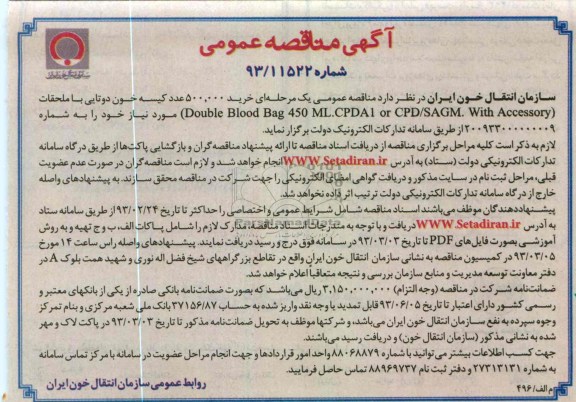 آگهی مناقصه عمومی
شماره ۹۳/۱۱۵۲۲
سازمان انتقال خون ایران در نظر دارد مناقصه عمومی یک مرحله‌ای خرید ۵۰۰,۰۰۰ عدد کیسه خون دوتایی با ملحقات
(Double Blood Bag 450 ML.CPDA1 or CPD/SAGM. With Accessory) مورد نیاز خود را به شماره
۲۰۰۹۳۳۰۰۰۰۰۰۰۰۹ از طریق سامانه تدارکات الکترونیک دولت برگزار نماید.
لازم به ذکر است کلیه مراحل برگزاری مناقصه از دریافت اسناد مناقصه تا ارائه پیشنهاد مناقصه گران و بازگشایی پاکت‌ها از طریق درگاه سامانه
تدارکات الکترونیکی دولت (ستاد) به آدرس WWW.Setadiran.ir انجام خواهد شد و لازم است مناقصه گران در صورت عدم عضویت
قبلی، مراحل ثبت نام در سایت مذکور و دریافت گواهی امضای الکترونیکی را جهت شرکت در مناقصه محقق سازند. به پیشنهادهای واصله
خارج از درگاه سامانه تدارکات الکترونیکی دولت ترتیب اثر داده نخواهد شد.
پیشنهاددهندگان موظف می‌باشند اسناد مناقصه شامل شرایط عمومی و اختصاصی را حداکثر تا تاریخ ۹۳/۰۲/۲۴ از طریق سامانه ستاد
به آدرس WWW.Setadiran.ir دریافت و با توجه به مندرجات اسناد مناقصه مدارک لازم را شامل پاکات الف، ب و ج تهیه و به روش
آموزشی بصورت فایل‌های PDF تا تاریخ ۹۳/۰۳/۰۳ در سامانه فوق درج و رسید دریافت نمایند. پیشنهادهای واصله راس ساعت ۱۴ مورخ
۹۳/۰۳/۰۵ در کمیسیون مناقصه به نشانی سازمان انتقال خون ایران واقع در تقاطع بزرگراههای شیخ فضل اله نوری و شهید همت بلوک A در
دفتر معاونت توسعه مدیریت و منابع سازمان بررسی و نتیجه متعاقبا اعلام خواهد شد.
ضمانت‌نامه شرکت در مناقصه (وجه التزام) ۳,۱۵۰,۰۰۰,۰۰۰ ریال می‌باشد که بصورت ضمانت‌نامه بانکی صادره از یکی از بانکهای معتبر و
رسمی کشور دارای اعتبار تا تاریخ ۹۳/۰۶/۰۵ قابل تمدید یا وجه نقد واریز شده به حساب ۳۷۱۵۶/۸۷ بانک ملی شعبه مرکزی و بنام تمرکز
وجوه سپرده به نفع سازمان انتقال خون ایران می‌باشد، شرکتها موظف به تحویل ضمانت‌نامه مذکور تا تاریخ ۹۳/۰۳/۰۳ در پاکت لاک و مهر
شده به نشانی مذکور (سازمان انتقال خون) و دریافت رسید می‌باشند.
جهت کسب اطلاعات بیشتر می‌توانید با شماره ۸۸۰۶۸۸۷۹ واحد امور قراردادها و جهت انجام مراحل عضویت در سامانه با مرکز تماس سامانه
به شماره ۲۷۳۱۳۱۳۱ و دفتر ثبت نام ۸۸۹۶۹۷۳۷ تماس حاصل فرمایید.
روابط عمومی سازمان انتقال خون ایران
م الف/۴۹۶